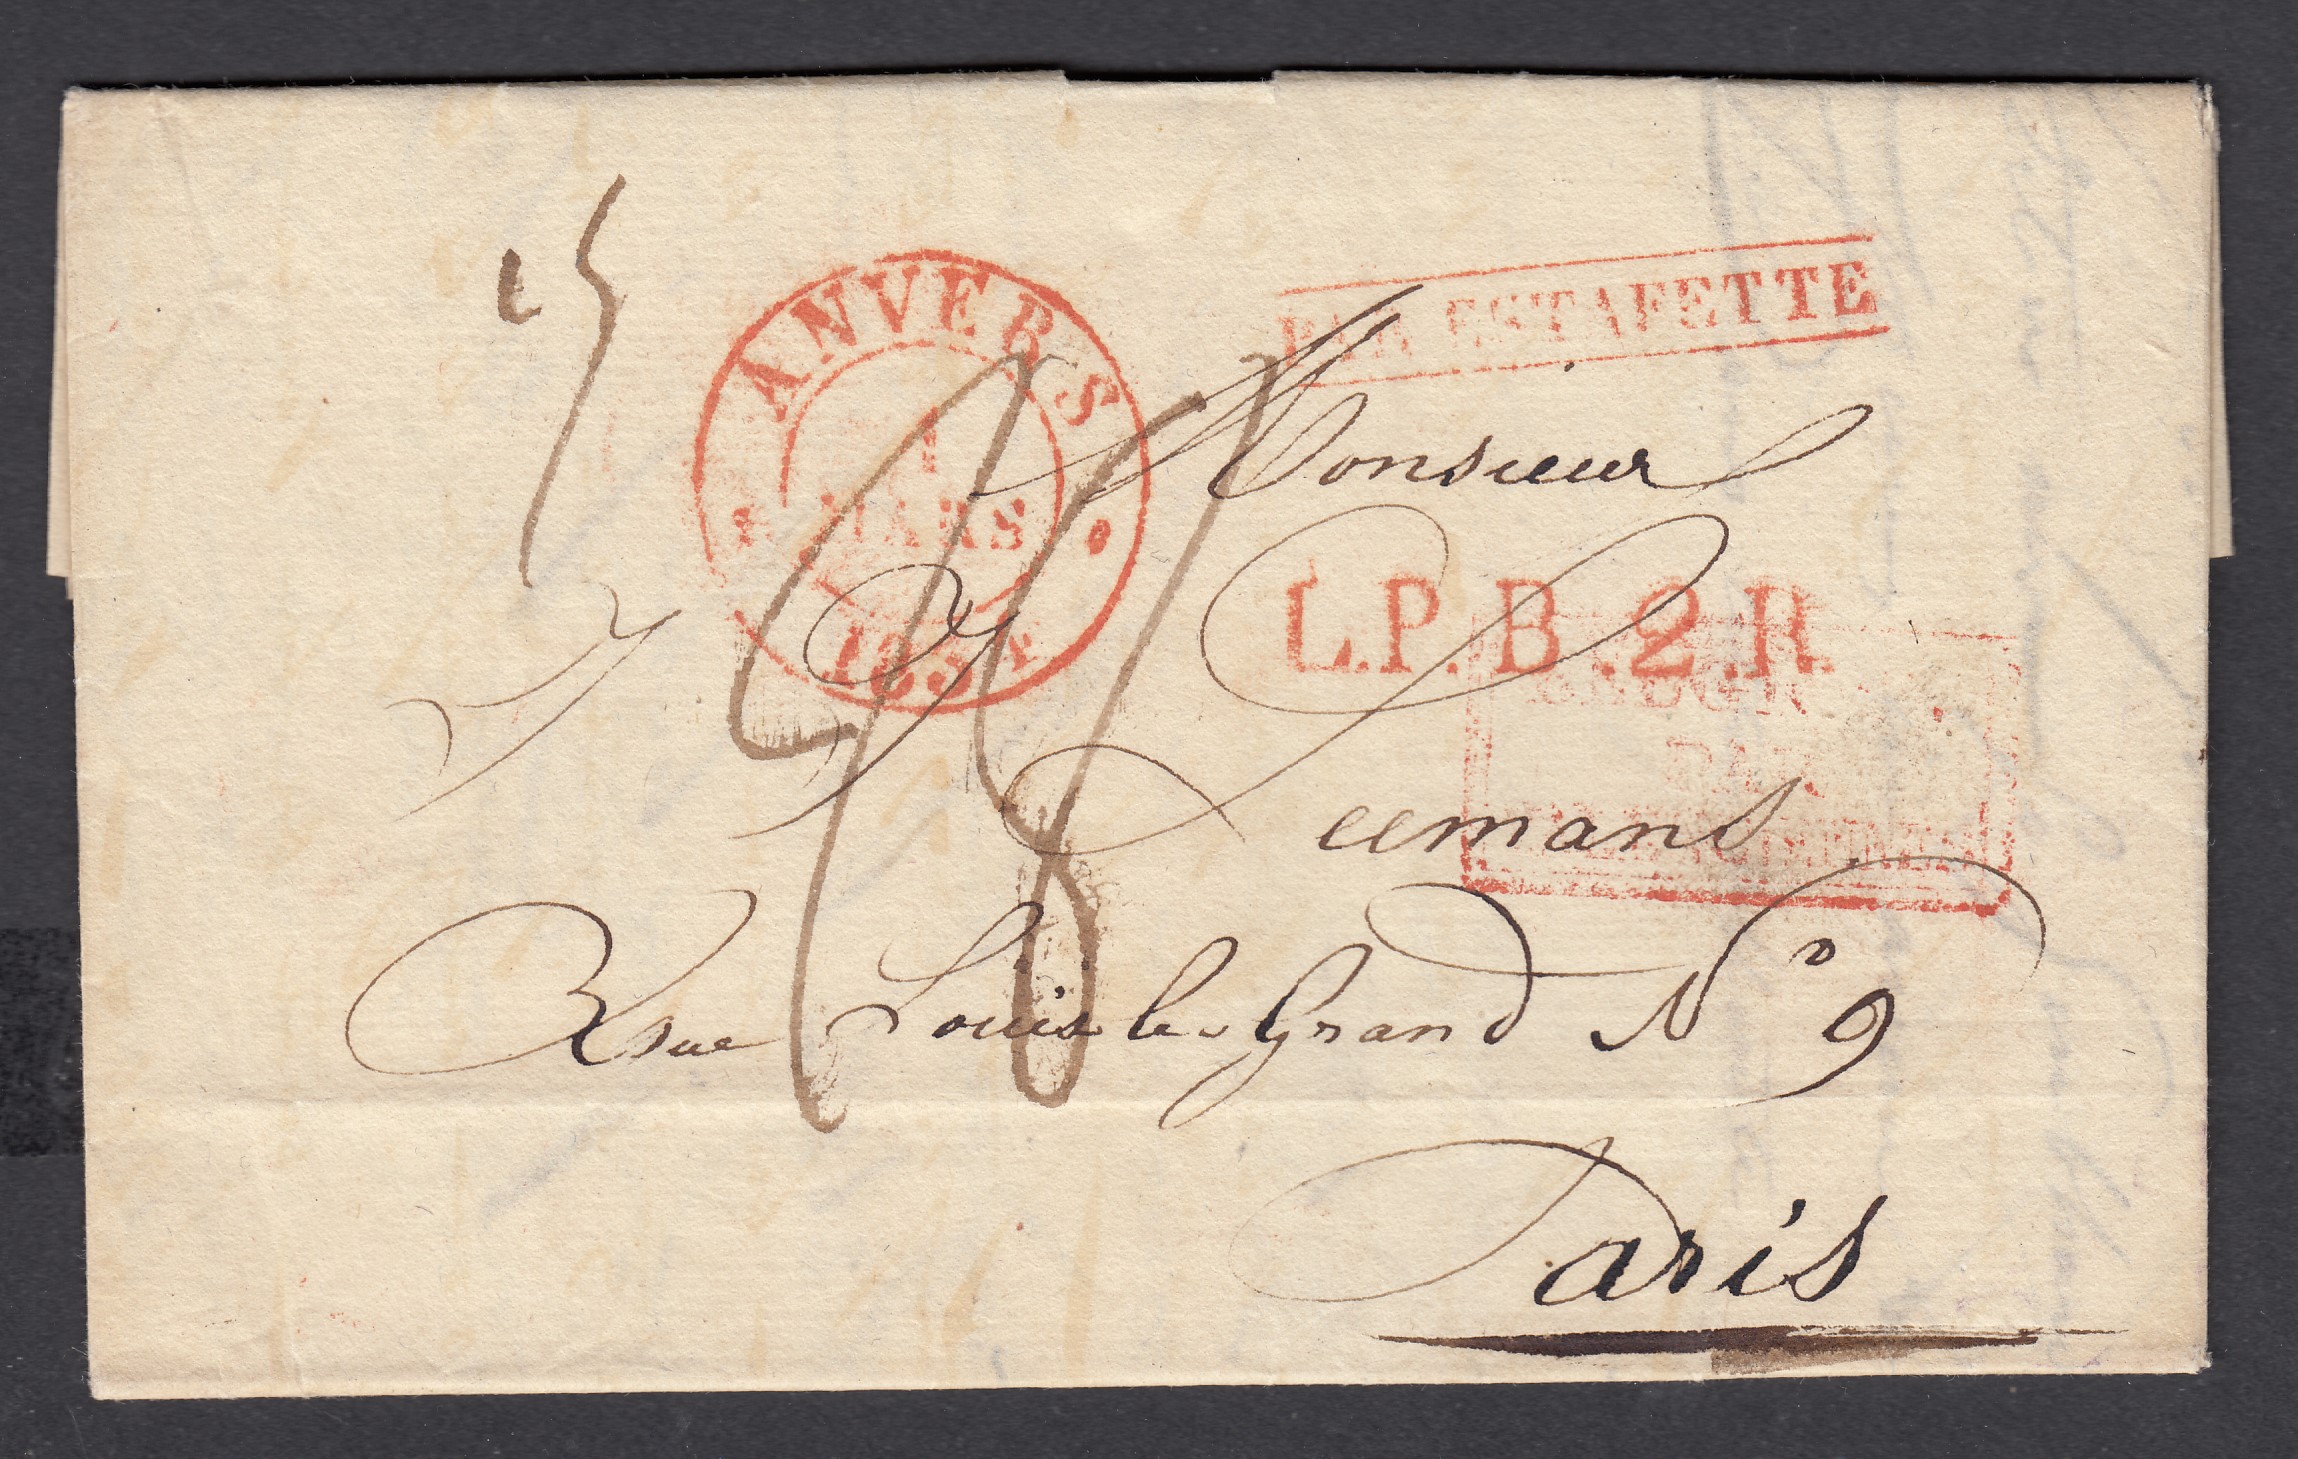 ANVERS
1
MARS
1834
PAR ESTAFETTE
Monsieur
L.P.B.2.R.
PAR
Rue Louis le Grand N° 9
Paris